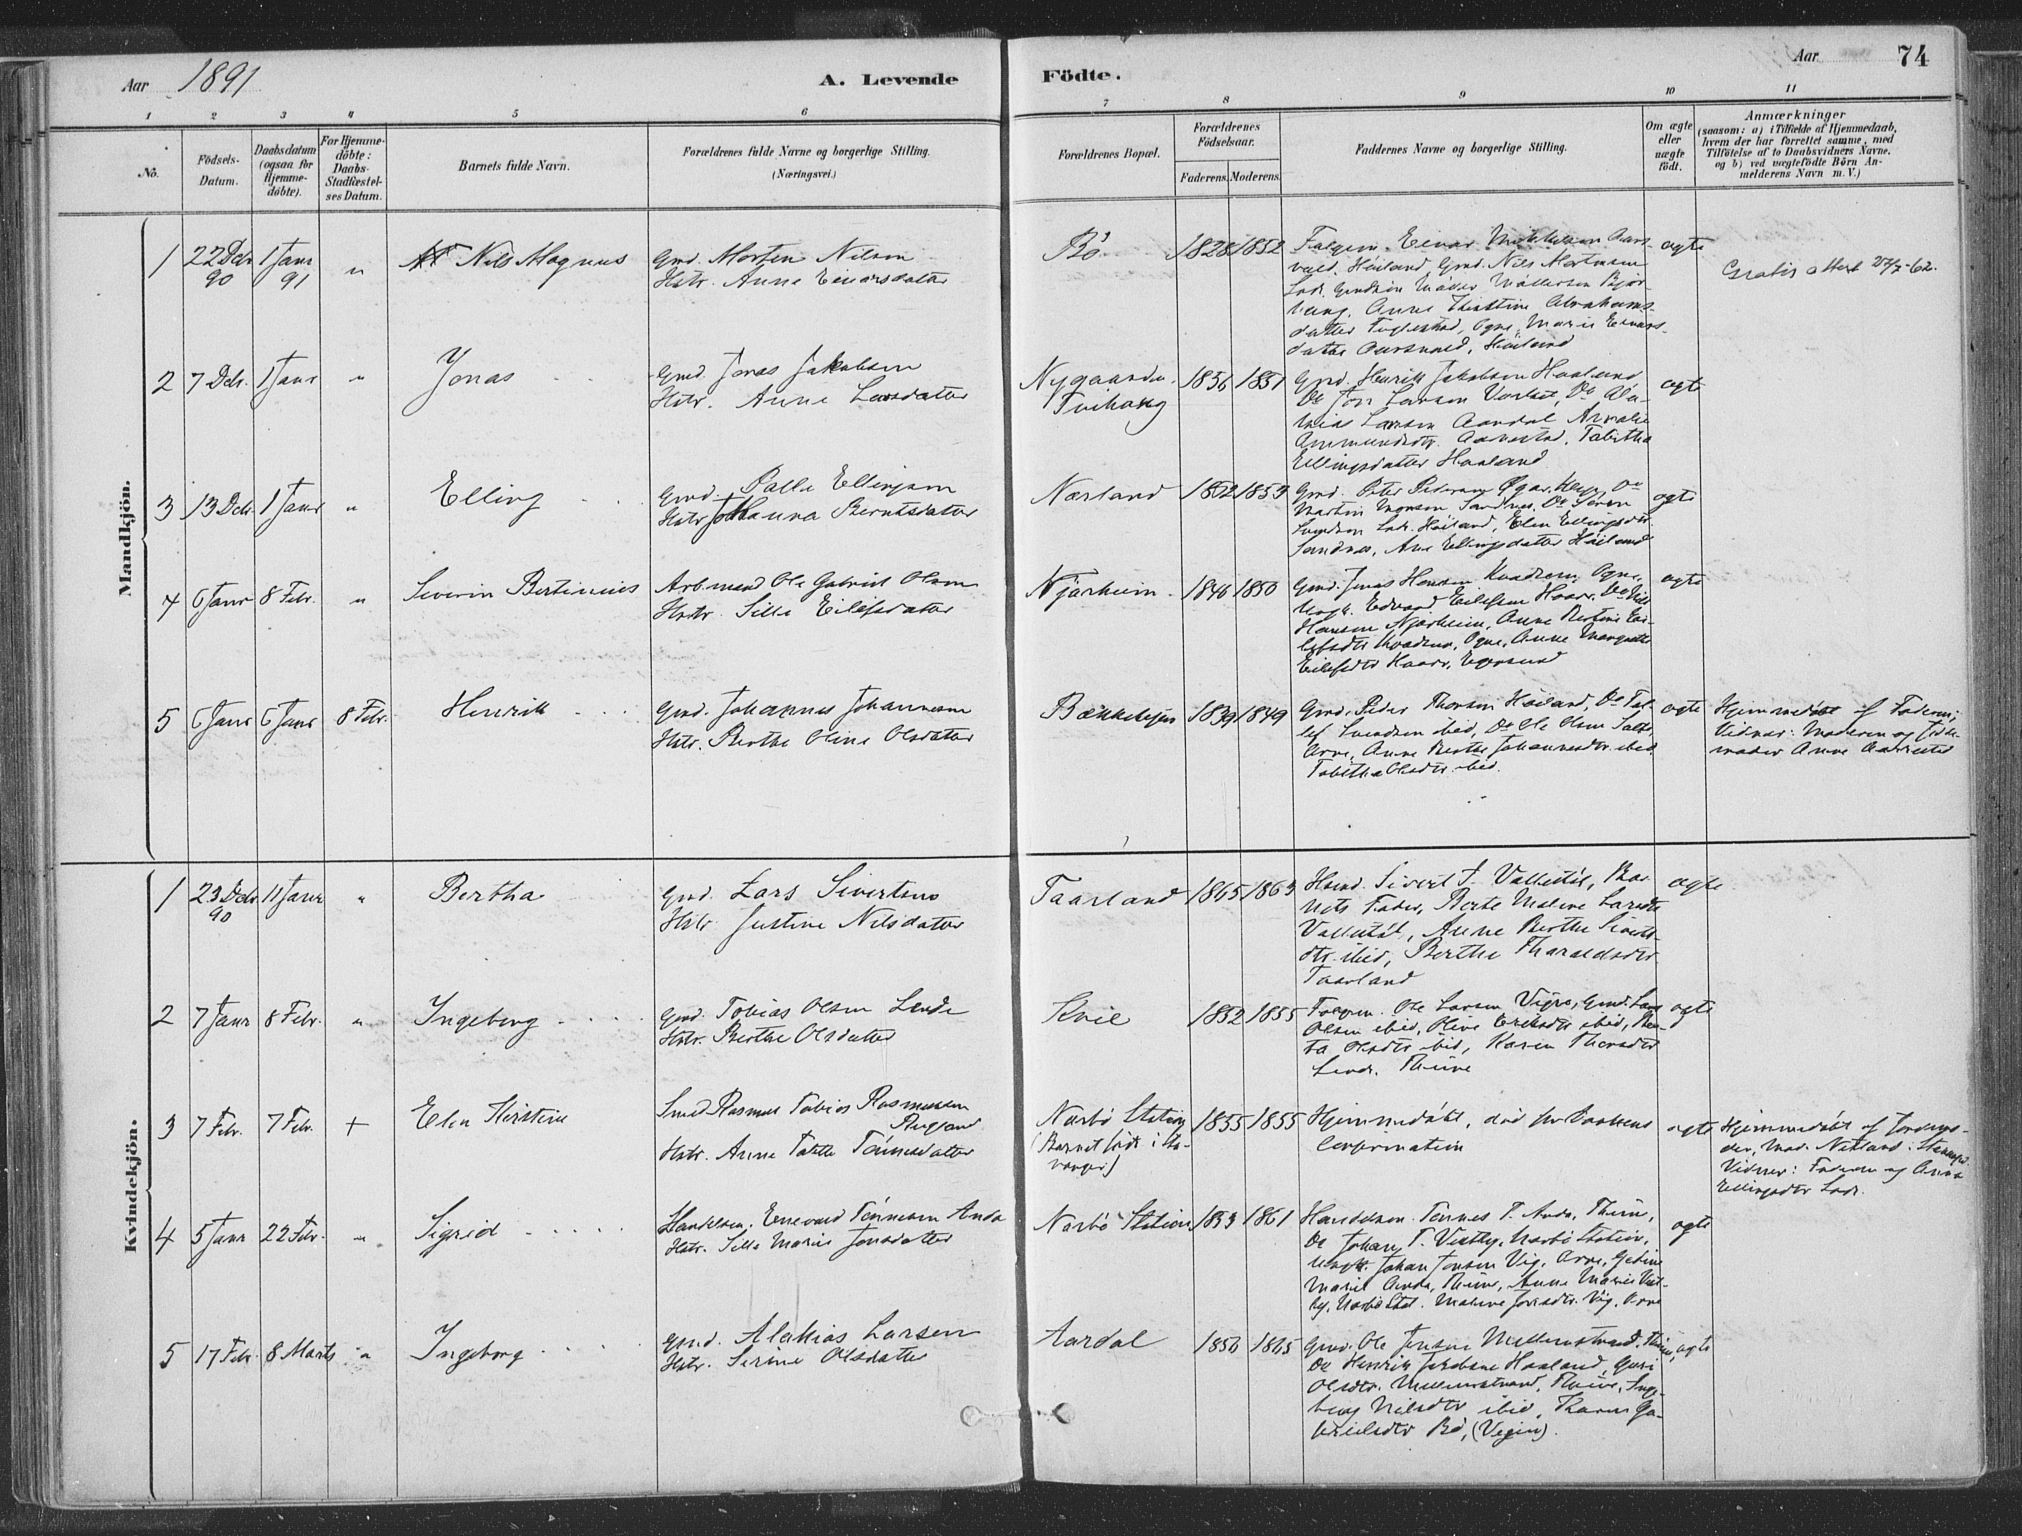 Aar 1891
A. Levende
Födte.
Aar
74
1 2 3 4 5 6 7 8 9 10 11
No.
Födsels-
Datum.
Daabsdatum
(ogsaa for
Hjemme-
döbte).
For Hjemme-
döbte:
Daabs-
Stadfæstel-
ses Datum.
Barnets fulde Navn.
Forældrenes fulde Navne og borgerlige Stilling.
(Næringsvei.)
Forældrenes Bopæl.
Forældrenes
Födselsaar.
Faderens.
Moderens.
Faddernes Navne og borgerlige Stilling.
Om ægte
eller
uægte
födt.
Anmærkninger
(saasom: a) i Tilfælde af Hjemmedaab,
hvem der har forrettet samme, med
Tilföielse af to Daabsvidners Navne,
og b) ved uægtefödte Börn An-
melderens Navn m. V.)
Mandkjön.
1 22 Decbr 90 1 Janr 91 " Nils Magnus
Gmd. Morten Nilsen
Hstr. Anne Einarsdatter
Bö 1828 1852
Einar Mikkelsen Aars-
vold, Höiland, Gmd. Nils Mortensen
Anne Kristine Abrahams-
datter Fuglestad, Ogne, Marie Einars-
datter Aarsvold, Höiland
ægte
Gratis attest 27/7-62.
2 7 Decbr. 1 Janr " Jonas
Gmd. Jonas Jakobsen
Hstr. Anne Larsdatter
Nygaarden
Tvihaug
1856 1851
Gmd. Henrik Jakobsen Haaland
Do Jon Larsen Varhet, Do Ala-
kias Larsen Aardal
Tabitha
Ellingsdatter Haaland
ægte
3 13 Decbr 1 Janr " Elling
Gmd. Palle Ellingsen
Hstr Johanna Berntsdatter
Nærland 1852 1853
Gmd. Peter Pedersen
Martin Monsen Sandnes, Do Sören
Svendsen Lode, Höiland, Elen Ellingsdtr.
Sandnes, Ane Ellingsdatter Höiland
ægte
4 6 Janr 8 Febr. " Severin Bertinius
Arb.mand Ole Gabriel Olsen
Hstr. Sille Eilefsdatter
Njärheim 1846 1850
Gmd. Jonas Hansen Kvadsem, Ogne,
Ungk. Edvard Eilefsen Haar,
Hansen Njärheim, Anne Bertine Ei-
lefsdtr Kvadsem, Ogne, Anne Margrethe
Eilefsdtr Haar, Egersund
ægte
5 6 Janr 6 Janr 8 Febr. Henrik
Gmd. Johannes Johannesen
Hstr. Berthe Oline Olsdatter
1839 1849
Gmd. Peder Thorsen Höiland, Do Tol-
lef Svendsen ibid, Do Ole Olsen Salte
Orre, Anne Berthe Johannesdtr. ibid
Tabitha Olsdtr. ibid.
ægte
Hjemmedöbt af Faderen;
Vidner: Moderen og Jorde-
moder Anne Aarrestad
Kvindekjön.
1 23 Decbr 90 11 Janr " Bertha
Gmd. Lars Sivertsen
Hstr. Justine Nilsdatter
Taarland 1865 1863
Sivert T. Vallestöl, Bar-
nets Fader, Berte Malene Larsdtr
Vallestöl, Anne Berthe Siverts-
dtr. ibid, Berthe Tharaldsdtr
Taarland
ægte
2 7 Janr 8 Febr. " Ingeborg
Gmd. Tobias Olsen Lende
Hstr. Berthe Olsdatter
Kvie 1852 1855
Ole Larsen Vigre, Gmd. Lars
Olsen ibid, Oline Eriksdtr ibid, Ber-
ta Olsdtr ibid, Karen Thorsdtr
Lende, Thime
ægte
3 7 Febr. 7 Febr. + Elen Kirstine
Smed Rasmus Tobias Rasmussen
Hstr. Anne Tarte Tönnesdatter
Narbö Station
(Barnet födt i Sta-
vanger)
1855 1855
Hjemmedöbt, död før Daabens
Confirmation
ægte
Hjemmedöbt af Jordemo-
der, Mad. Netland, Stavanger
Vidner: Faderen og Anna
Ellingsdtr Lode.
4 5 Janr 22 Febr. " Sigrid
Handelsm. Enevald Tönnesen Anda
Hstr. Sille Marie Jonsdatter
Narbö Station 1853 1861
Handelsm. Tönnes T. Anda, Thime,
Do Johan T. Vestly, Narbö Station,
Ungk. Johan Jonsen Vig, Orre, Gitine
Marie Anda, Thime, Anne Marie Vest-
ly, Narbö Stat. Malene Jonsdtr. Vig, Orre
ægte
5 17 Febr. 8 Marts " Ingeborg
Gmd. Alakias Larsen
Hstr. Serine Olsdatter
Aardal 1856 1865
Gmd. Ole Jensen Mellemstrand, Thime,
Do Henrik Jakobsen Haaland, Guri
Olsdtr. Mellemstrand, Thime, Inge-
borg Nilsdtr ibid, Karen Ga-
brielsdtr Bö, (Vigin).
ægte